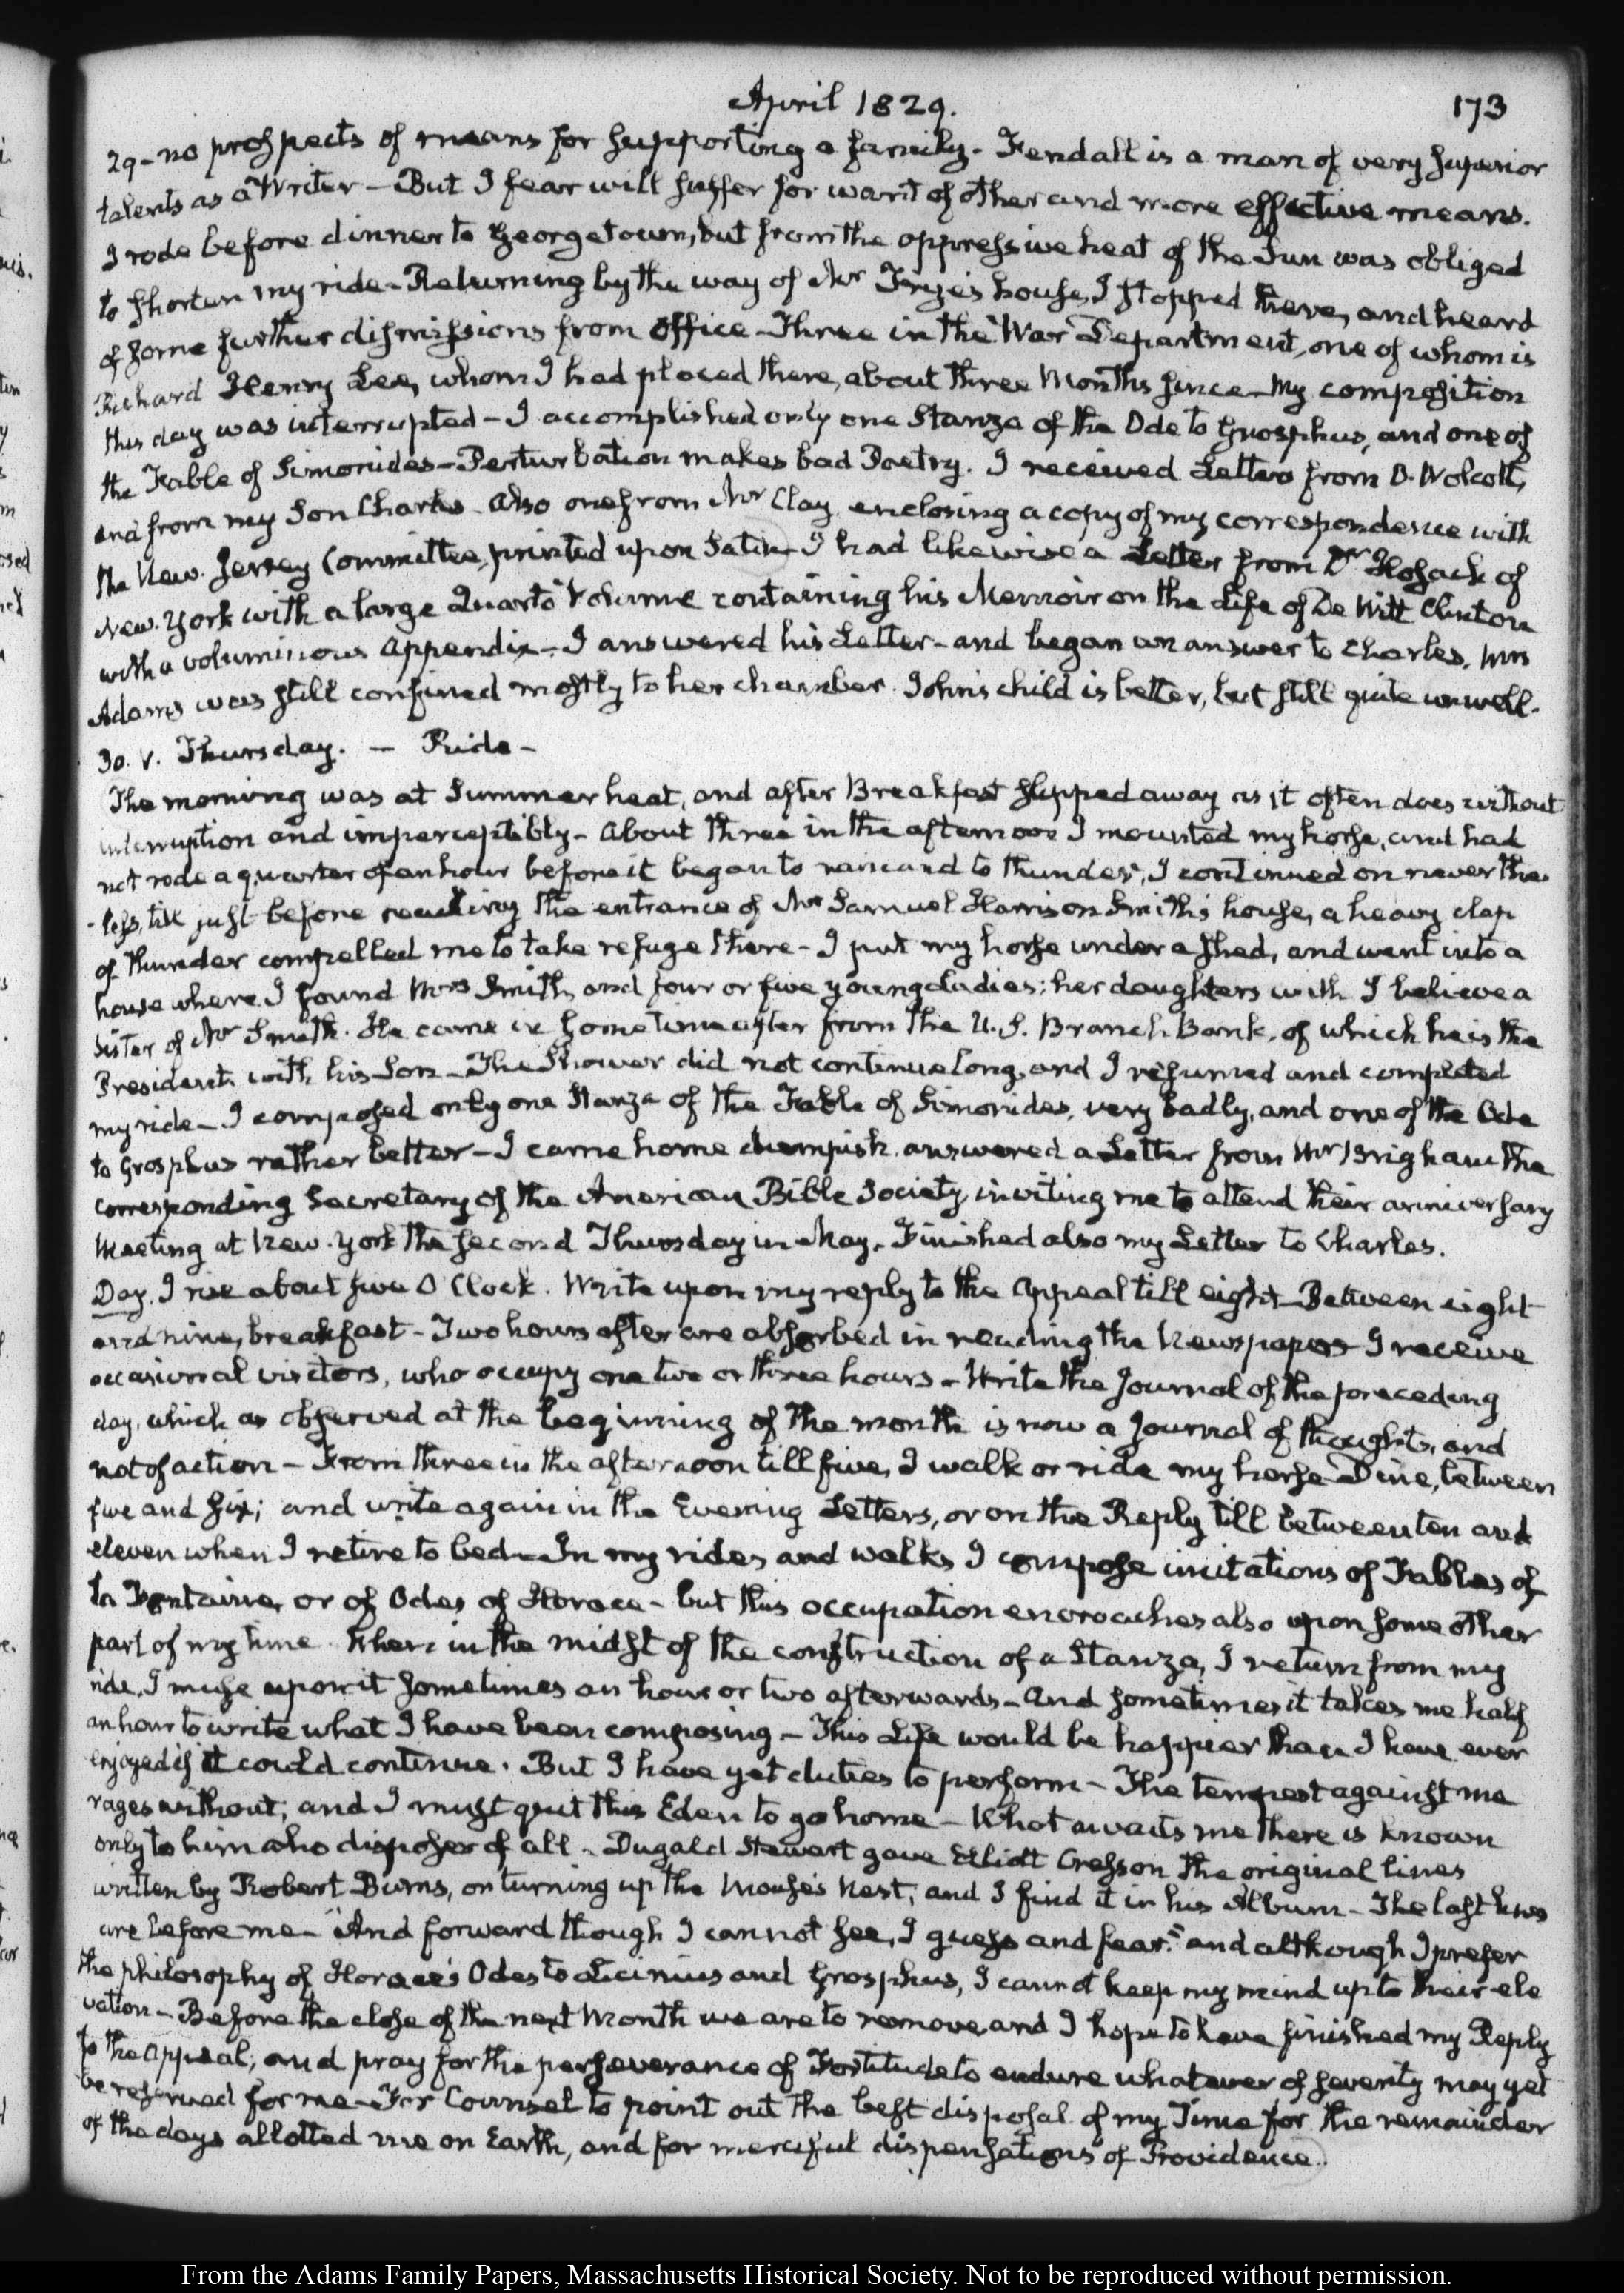 April 1829.
173
29 - no prospects of means for supporting a family - Kendall is a man of very superior
talents as a Writer - But I fear will suffer for want of other and more effective means.
I rode before dinner to Georgetown, but from the oppressive heat of the Sun was obliged
to shorten my ride - Returning by the way of Mr Frye's house, I stopped there, and heard
of some further dismissions from office - Three in the War Department, one of whom is
Richard Henry Lee, whom I had placed there, about three Months since - My composition
this day was interrupted - I accomplished only one Stanza of the Ode to Grosphus, and one of
the Fable of Simonides - Perturbation makes bad Poetry. I received Letters from O. Wolcott,
and from my Son Charles. Also one from Mr Clay enclosing a copy of my correspondence with
the New-Jersey Committee, printed upon Satin - I had likewise a Letter from Dr Hosack of
New-York with a large Quarto Volume containing his Memoir on the Life of De Witt Clinton
with a voluminous Appendix - I answered his Letter - and began an answer to Charles. Mrs
Adams was still confined mostly to her chamber. John's child is better, but still quite unwell.
30. V. Thursday. - Ride -
The morning was at Summer heat, and after Breakfast slipped away as it often does without
interruption and imperceptibly - About three in the afternoon I mounted my horse, and had
not rode a quarter of an hour before it began to rain and to thunder, I continued on never the-
-less, till just before reaching the entrance of Mr Samuel Harrison Smith's house, a heavy clap
of thunder compelled me to take refuge there - I put my horse under a shed, and went into a
house where I found Mrs Smith, and four or five young Ladies; her daughters with I believe a
Sister of Mr Smith. He came in sometime after from the U.S. Branch Bank, of which he is the
President, with his Son - The Shower did not continue long, and I resumed and completed
my ride - I composed only one Stanza of the Fable of Simonides, very badly, and one of the Ode
to Grosphus rather better - I came home dumpish, answered a Letter from Mr Brigham the
corresponding Secretary of the American Bible Society, inviting me to attend their anniversary
Meeting at New-York the second Thursday in May. Finished also my Letter to Charles.
Day. I rise about five O'Clock. Write upon my reply to the Appeal till eight - Between eight
and nine, breakfast - Two hours after are absorbed in reading the Newspapers - I receive
occasional visitors, who occupy one two or three hours - Write the Journal of the preceding
day, which as observed at the beginning of the month is now a Journal of thoughts, and
not of action - From three in the afternoon till five, I walk or ride my horse - Dine, between
five and six; and write again in the Evening Letters, or on the Reply till between ten and
eleven when I retire to bed - In my rides and walks I compose imitations of Fables of
La Fontaine, or of Odes of Horace - but this occupation encroaches also upon some other
part of my time. When in the midst of the construction of a Stanza, I return from my
ride, I muse upon it sometimes an hour or two afterwards - And sometimes it takes me half
an hour to write what I have been composing - This Life would be happier than I have ever
enjoyed if it could continue. But I have yet duties to perform - The tempest against me
rages without, and I must quit this Eden to go home - What awaits me there is known
only to him who disposes of all - Dugald Stewart gave Elliott Cresson the original lines
written by Robert Burns, on turning up the Mouse's Nest, and I find it in his Album - The last lines
are before me - "And forward though I cannot see, I guess and fear." and although I prefer
the philosophy of Horace's Odes to Licinius and Grosphus, I cannot keep my mind up to their ele
vation - Before the close of the next Month we are to remove, and I hope to have finished my Reply
to the Appeal, and pray for the perseverance of Fortitude to endure whatever of severity may yet
be reserved for me - For Counsel to point out the best disposal of my Time for the remainder
of the days allotted me on Earth, and for merciful dispensations of Providence.
From the Adams Family Papers, Massachusetts Historical Society. Not to be reproduced without permission.